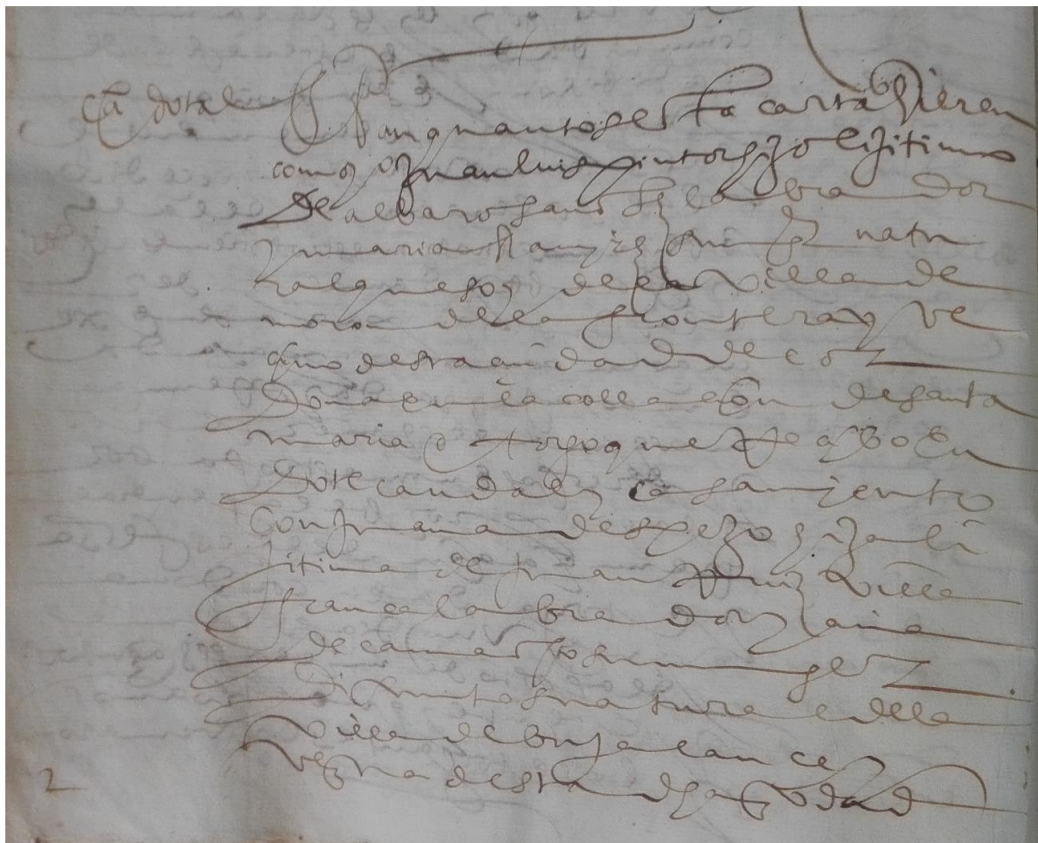 Cª dotal
Sepan quantos esta carta vieren
como yo Juan luis pintor hijo lijitimo
de albaro sans labrador
y maria Ramirez su muger natu
ral que soy de la villa de
mora de la frontera y ve
zino desta ciudad de cor
doua en la collaçion de santa
maria otorgo que Reçibo en
dote caudal y casamiento
con Juana de espejo hija li
jitima de Juan Ruiz Villa
franca labrador y ana
de camas su muger
difuntos natural de la
villa de bujalançe
vezina desta dha ziudad
2